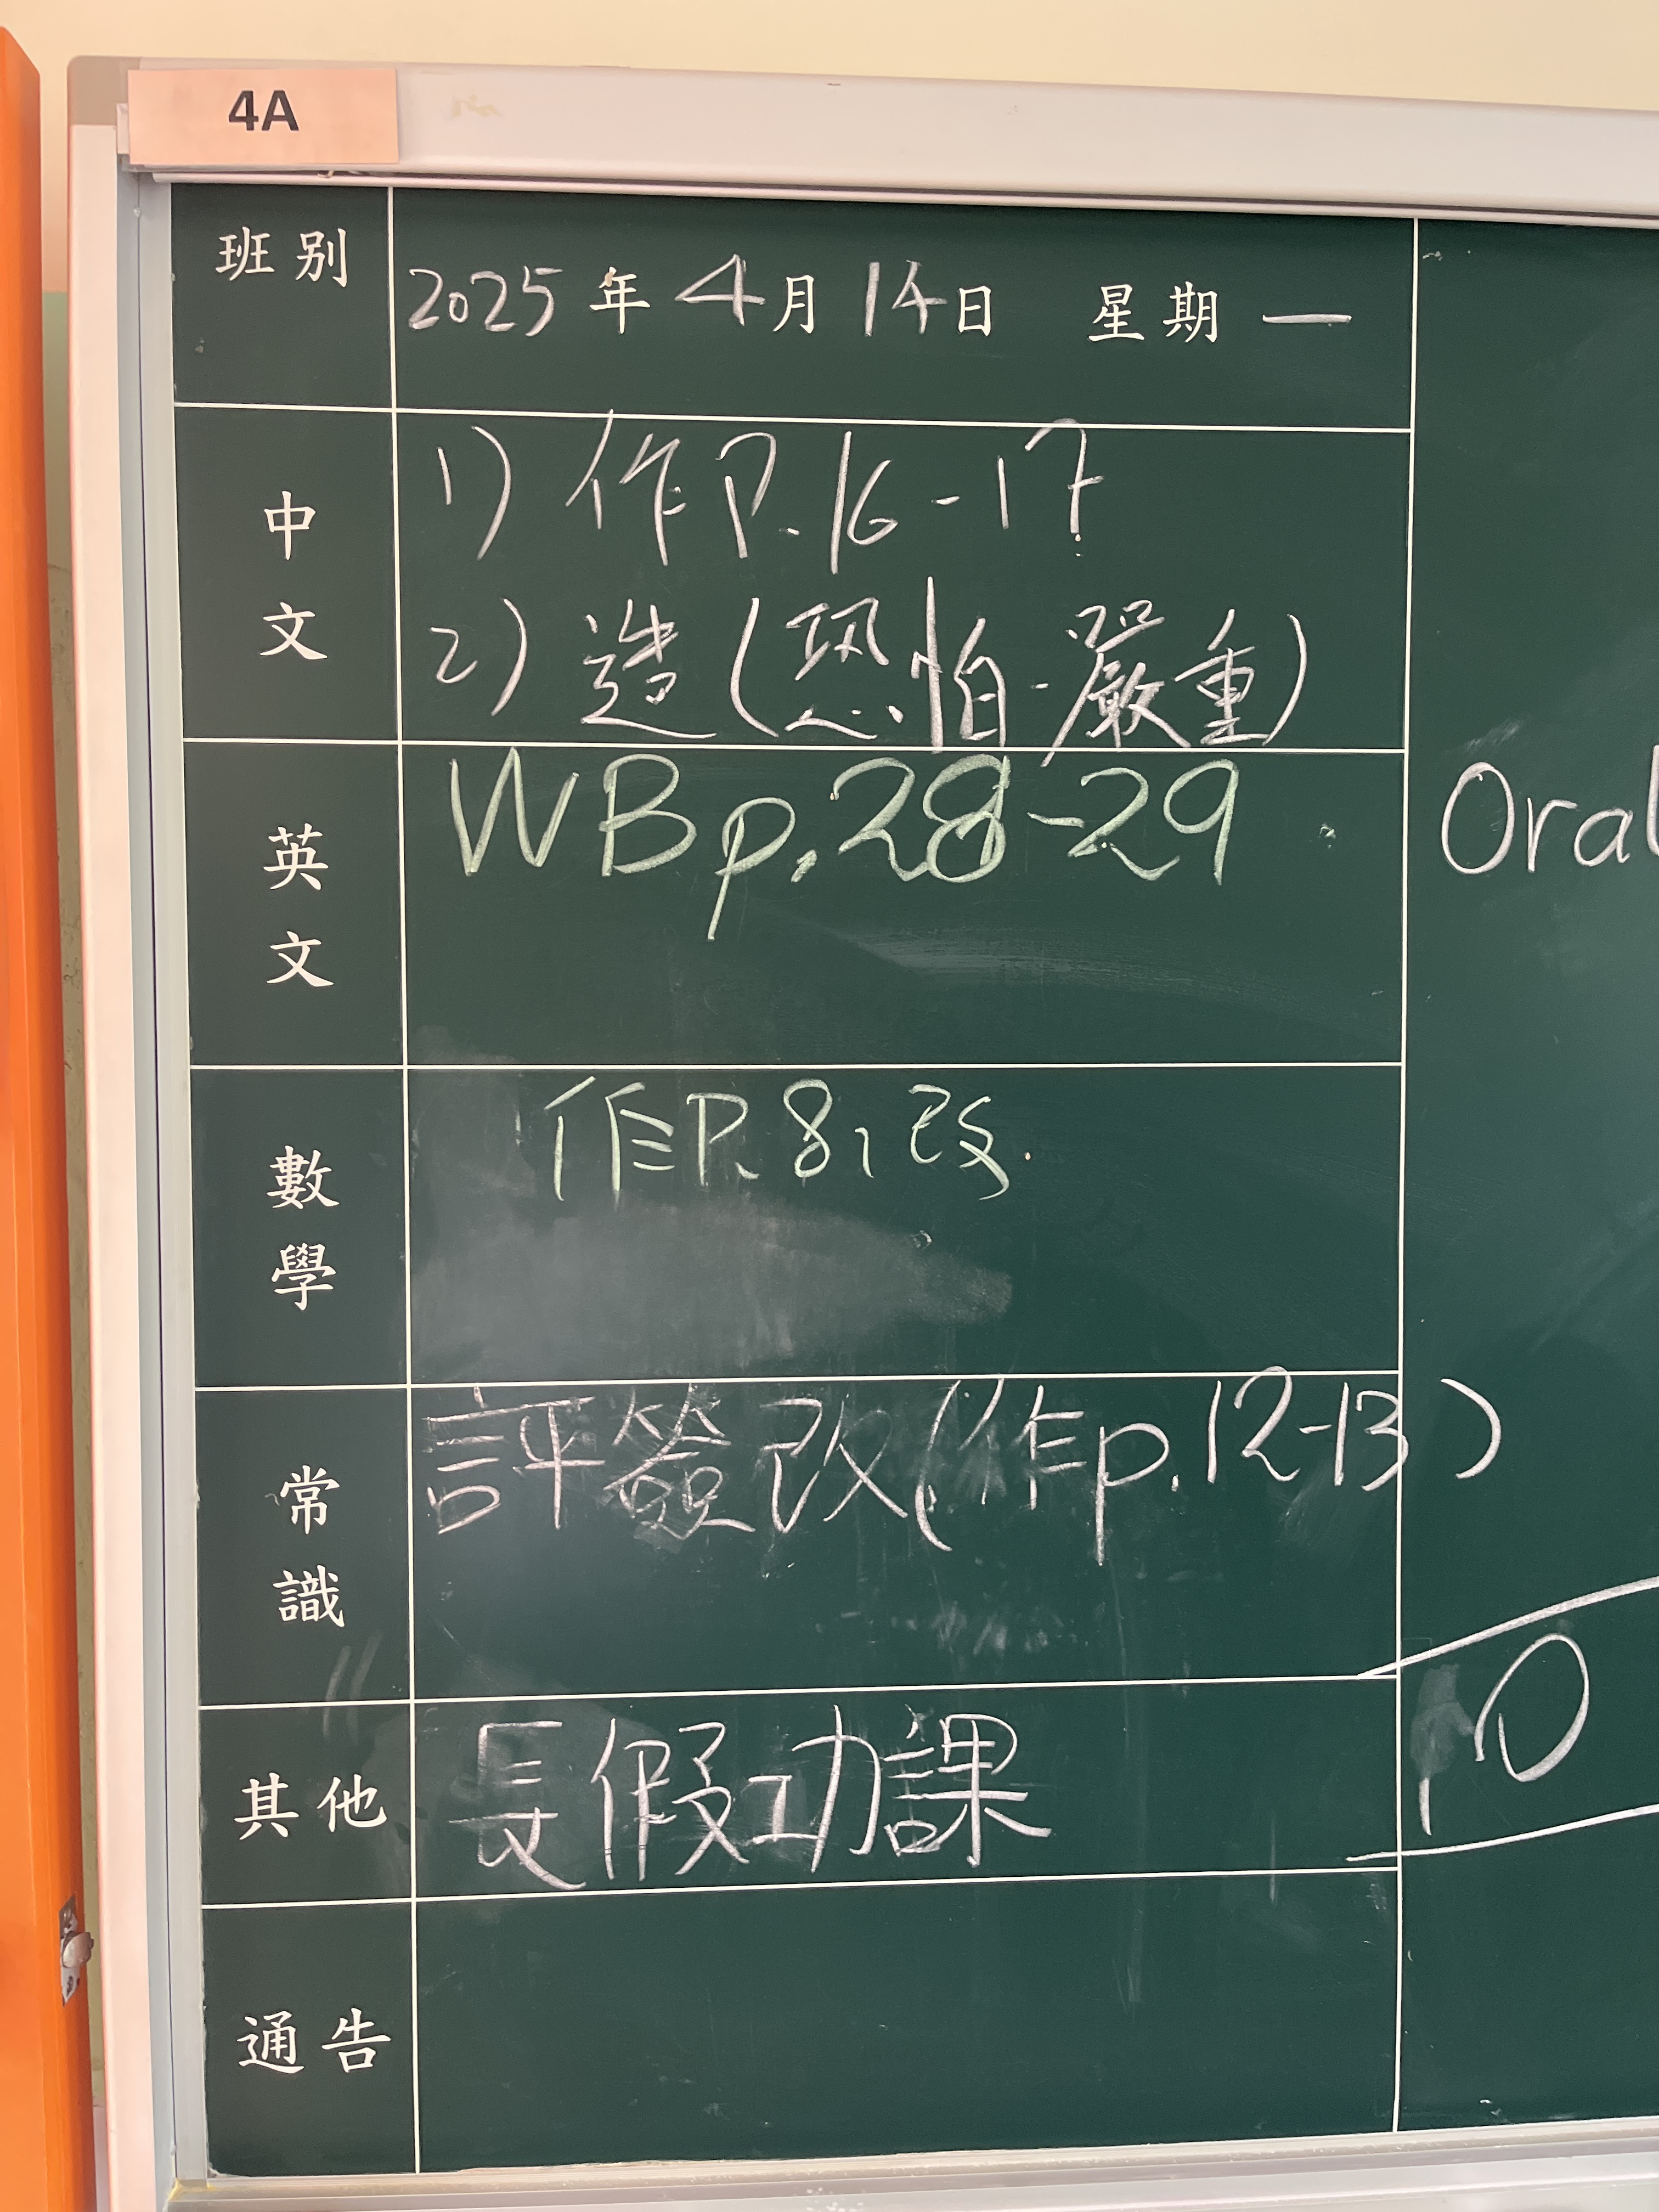 4A
班別
2025年4月14日 星期一
中文
1) 作P.16-17
2) 造(恐怕-嚴重)
英文
WB p.28-29
Oral
數學
作P.8,改.
常識
評簽改(作p.12-13)
其他
長假功課
通告